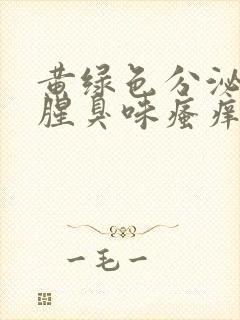 黄绿色分泌
腥臭味瘙痒
一毛一